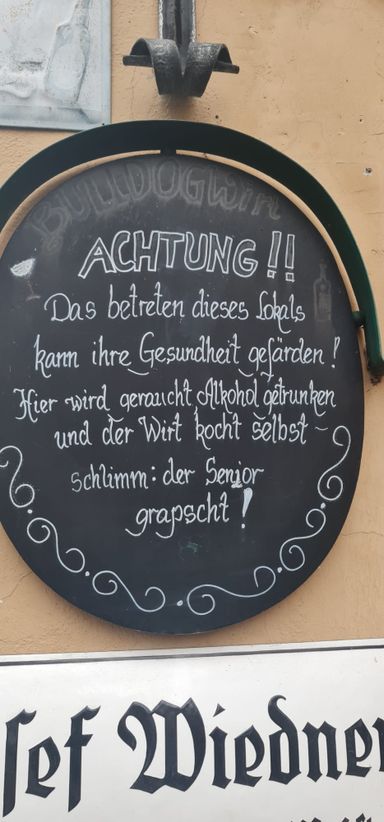 BULLDOGWirt
ACHTUNG!!
Das betreten dieses Lokals
kann ihre Gesundheit gefärden!
Hier wird geraucht Alkohol getrunken
und der Wirt kocht selbst
schlimm: der Senior
grapscht!
sef Wiedner